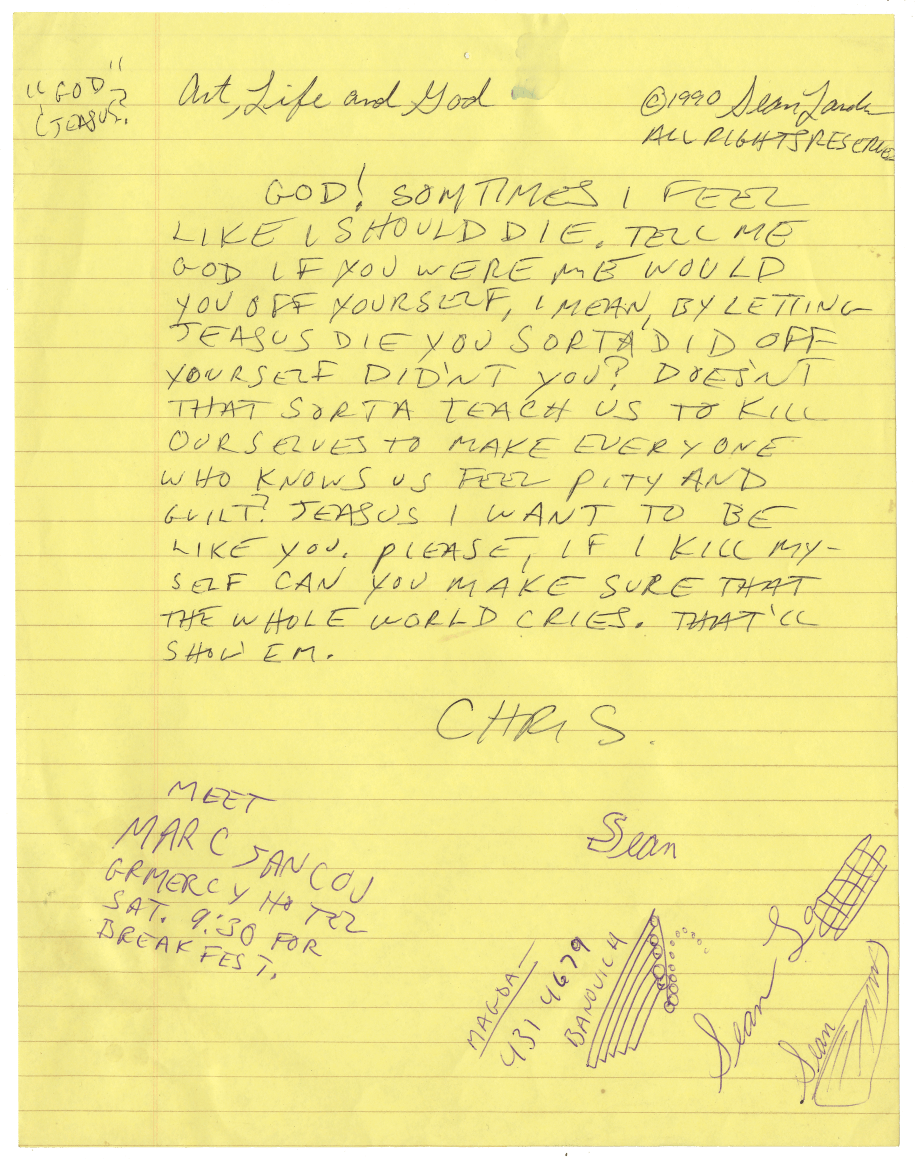 "GOD"?
(JEASUS.
Art, Life and God
©1990 Sean Landers
ALL RIGHTS RESERVED
GOD! SOMTIMES I FEEL
LIKE I SHOULD DIE. TELL ME
GOD IF YOU WERE ME WOULD
YOU OFF YOURSELF, I MEAN, BY LETTING
JEASUS DIE YOU SORTA DID OFF
YOURSELF DID'NT YOU? DOES'NT
THAT SORTA TEACH US TO KILL
OURSELVES TO MAKE EVERYONE
WHO KNOWS US FEEL PITY AND
GUILT? JEASUS I WANT TO BE
LIKE YOU. PLEASE, IF I KILL MY-
SELF CAN YOU MAKE SURE THAT
THE WHOLE WORLD CRIES. THAT'LL
SHOW EM.
CHRIS.
MEET
MARC JANCOU
GRMERCY HOTEL
SAT. 9:30 FOR
BREAKFEST.
Sean
MAGDA—
431 4679
BANOVICH
Sean La
Sean